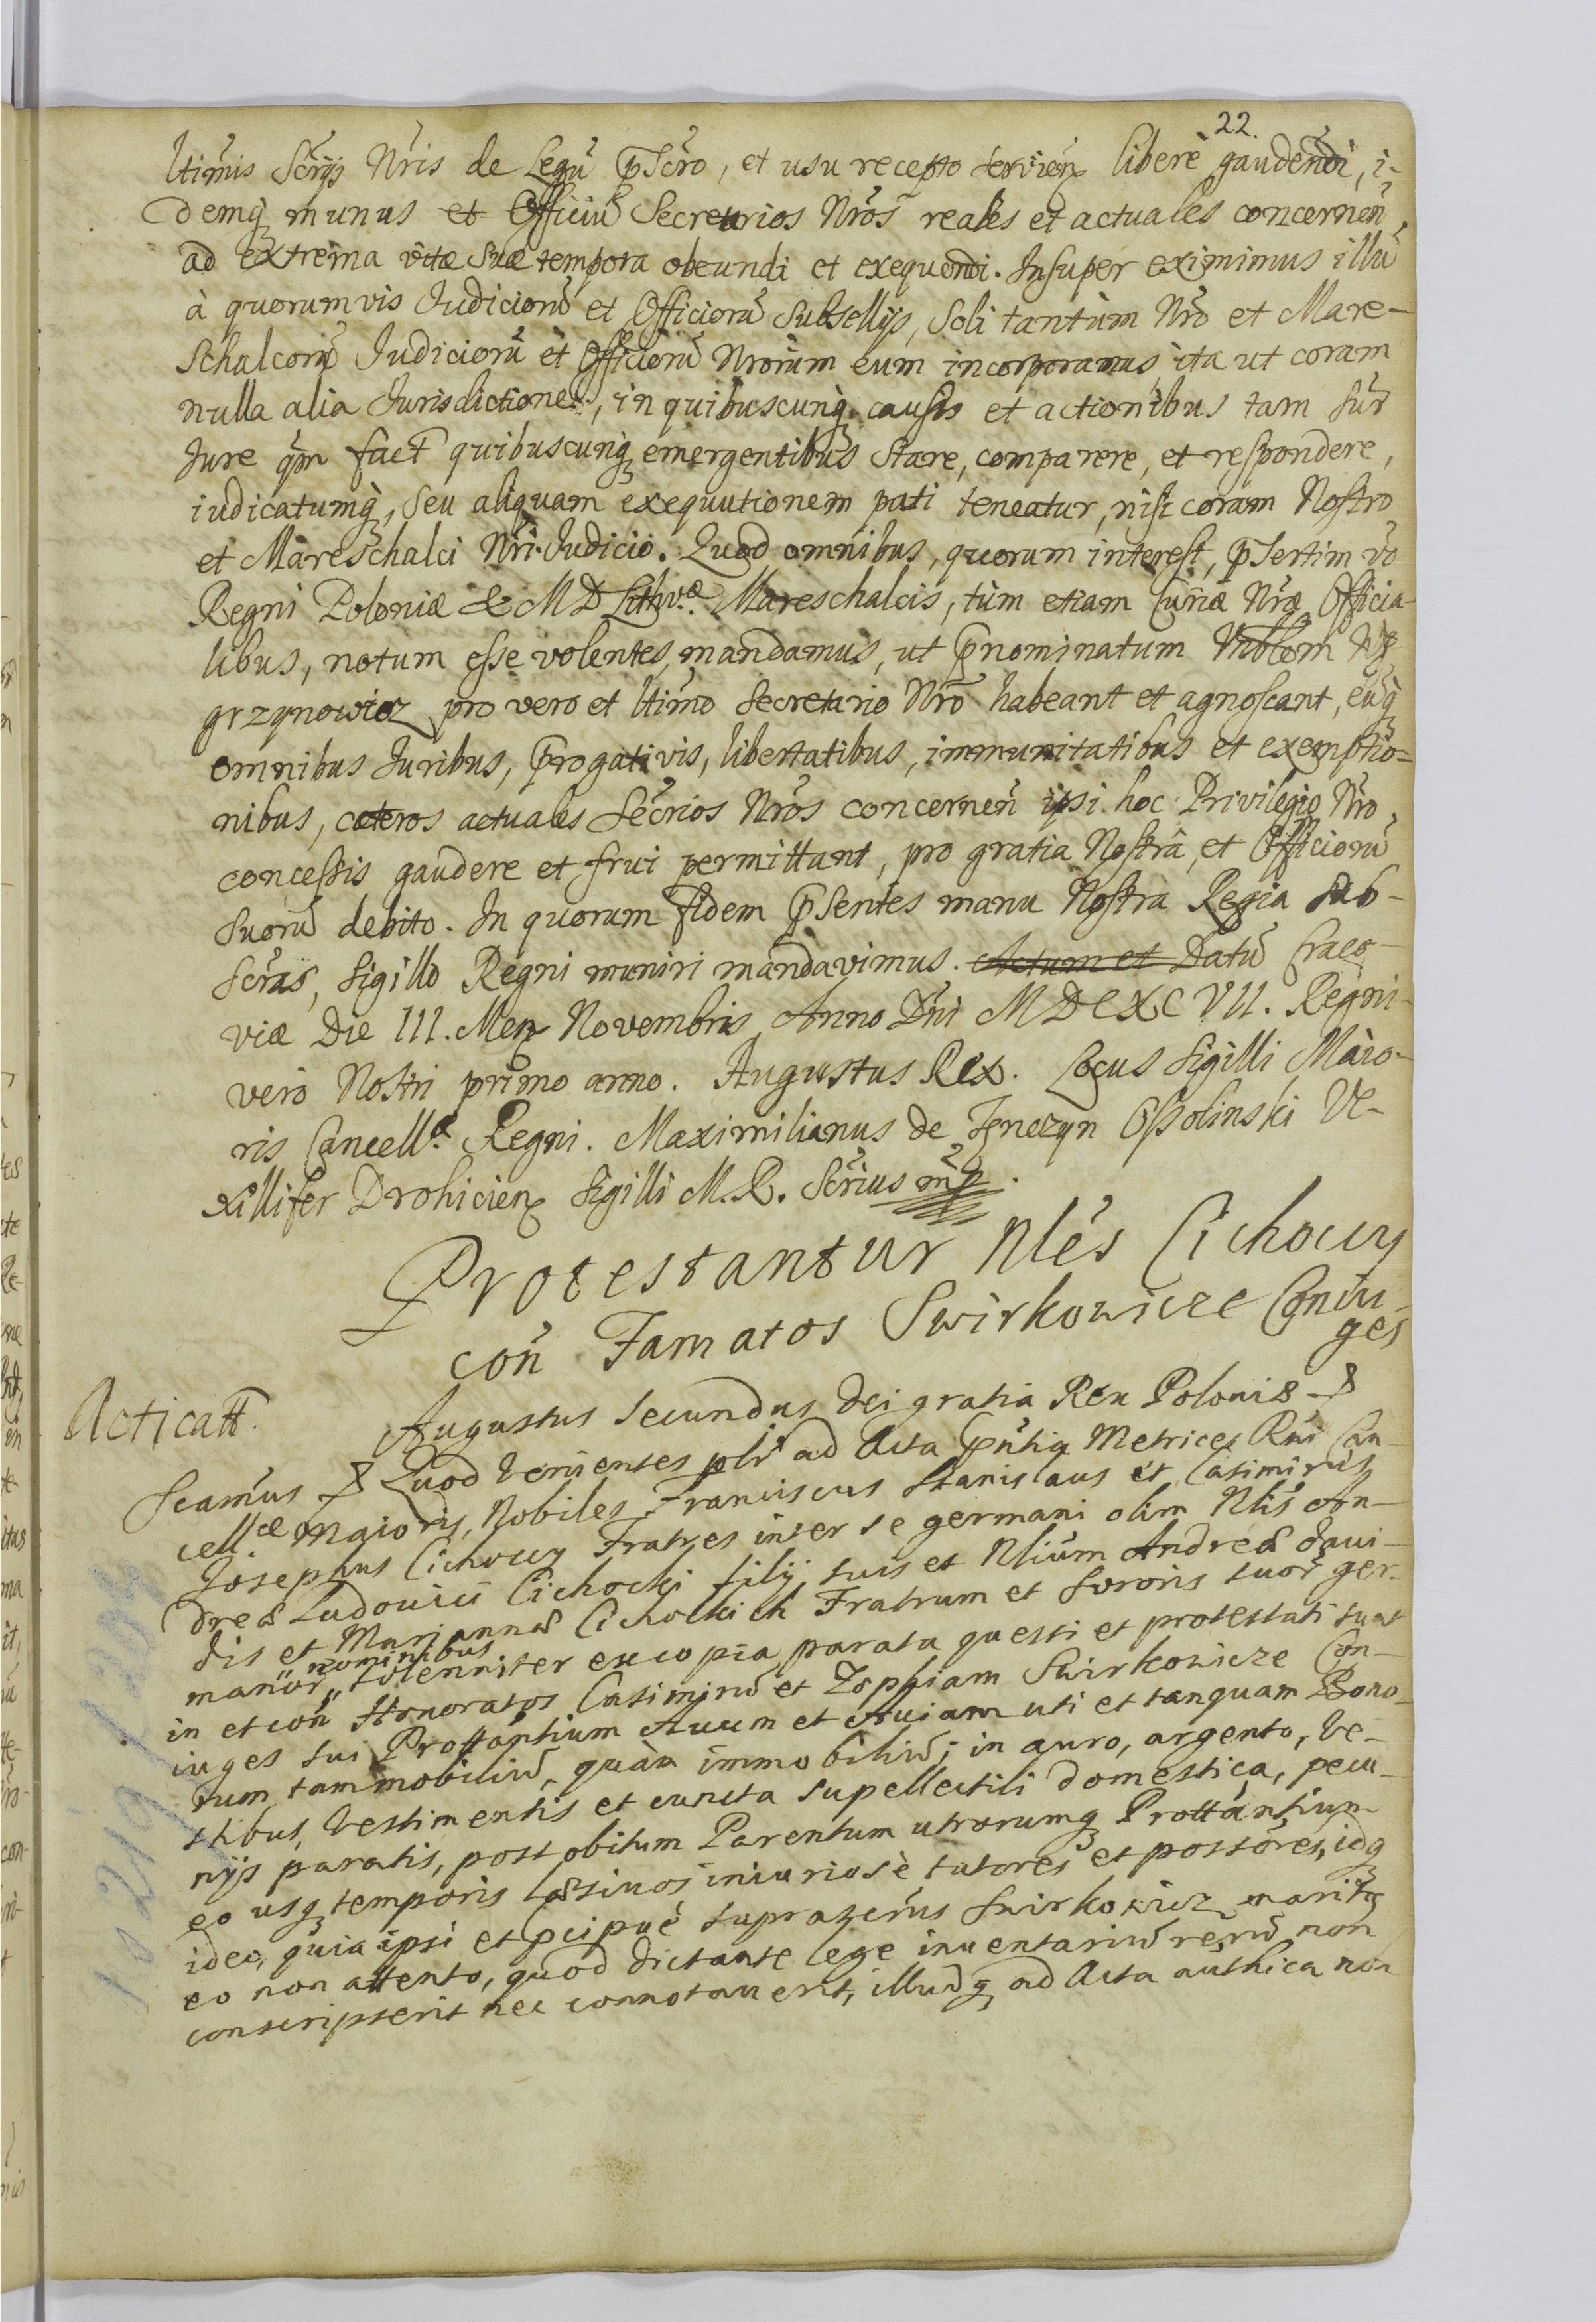 22.
ltimis Scrijs Nris de Legu pScro, et usu recepto servien libere gaudendi, i-
demq munus et Officiu Secretarios Nros reales et actuales concernen
ad extrema vitæ suæ tempora obeundi et exequendi. Insuper eximimus illu
à quorumvis Judicioru et Officioru Subsellijs, Soli tantùm Nro et Mare-
schalcoru Judicioru et Officioru Nrorum eum incorporamus, ita ut coram
nulla alia Jurisdictione, in quibuscunq causis et actionibus tam sur
Jure qm fact quibuscunq emergentibus stare, comparere, et respondere,
iudicatumq, seu aliquam exequutionem pati teneatur, nisi coram Nostro
et Mareschalci Nri Judicio. Quod omnibus, quorum interest, pSertim vo
Regni Poloniæ & M D Lithvæ Mareschalcis, tùm etiam Curiæ Nræ Officia-
libus, notum esse volentes, mandamus, ut pnominatum
grzynowicz pro vero et ltimo Secretario Nro habeant et agnoscant, euq
omnibus Juribus, progativis, libertatibus, immunitatibus et exemptio-
nibus, cæteros actuales Secrios Nros concernen ipsi hoc Privilegio Nro
concessis gaudere et frui permittant, pro gratia Nostrâ, et Officioru
suoru debito. In quorum fidem pSentes manu Nostrà Regia sub-
scras, sigillo Regni muniri mandavimus. Actum et Datu Craco-
viæ Die III. Men Novembris Anno Dni MDCXCVII. Regni
verò Nostri primo anno. Augustus Rex. Locus Sigilli Maio-
ris Cancellæ Regni. Maximilianus de Tenczyn Ossolinski Ve-
xillifer Drohicien Sigilli M. R. Scrius mp.
Protestantur Nles Cichoccy
con Famatos Swirkowicze Coniu-
ges
Acticatt.
Augustus Secundus Dei gratia Rex Poloniæ &
Scamus & Quod Venientes plr ad Acta pntia Metrices Rni Can-
cellæ Maioris, Nobiles Franciscus Stanislaus et Casimirus
Josephus Cichoccy Fratres inter se germani olim Nlis An-
dreæ Ludovici Cichocki filij suis et Nlium Andreæ Davi-
dis et Mariannæ Cichockich Fratrum et Sororis suor ger-
nominibus
manor „ solenniter ex copia parata questi et protestati sunt
in et con Honoratos Casimiru et Zophiam Swirkowicze Con-
iuges sui Prottantium Avum et Aviam uti et tanquam Bono-
rum tam mobiliu, quàm immobiliu; in auro, argento, Ve-
stibus, Vestimentis et cuncta supellectili domestica, pecu-
nijs paratis, post obitum Parentum utrorumq Prottantium
eo usq temporis læsivos iniuriosè tutores et possores, idq
ideo, quia ipsi et pcipuè suprascrus Swirkowicz maritus
eo non attento, quod dictante lege inventariu reru non
conscripserit nec connotaverit, illudq ad Acta authica non